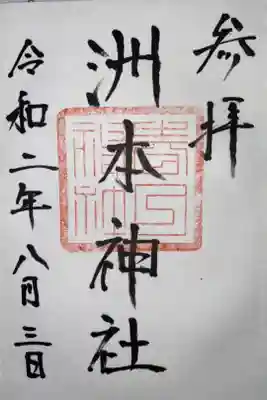 参拝
洲本神社
令和二年八月三日